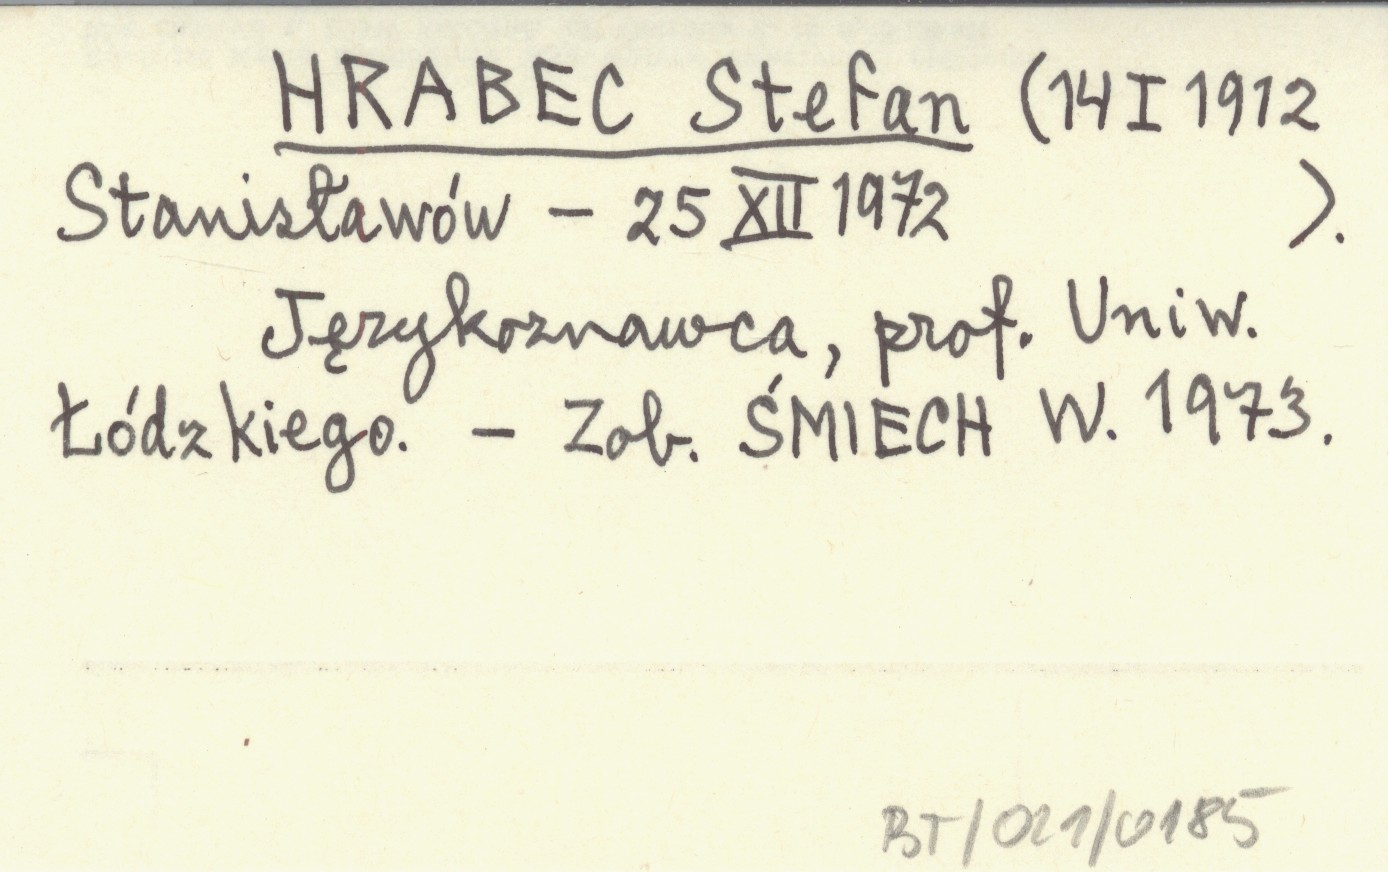 HRABEC Stefan (14 I 1912
Stanisławów – 25 XII 1972 ).
Językoznawca, prof. Uniw.
Łódzkiego. – Zob. ŚMIECH W. 1973.
BT/021/0185